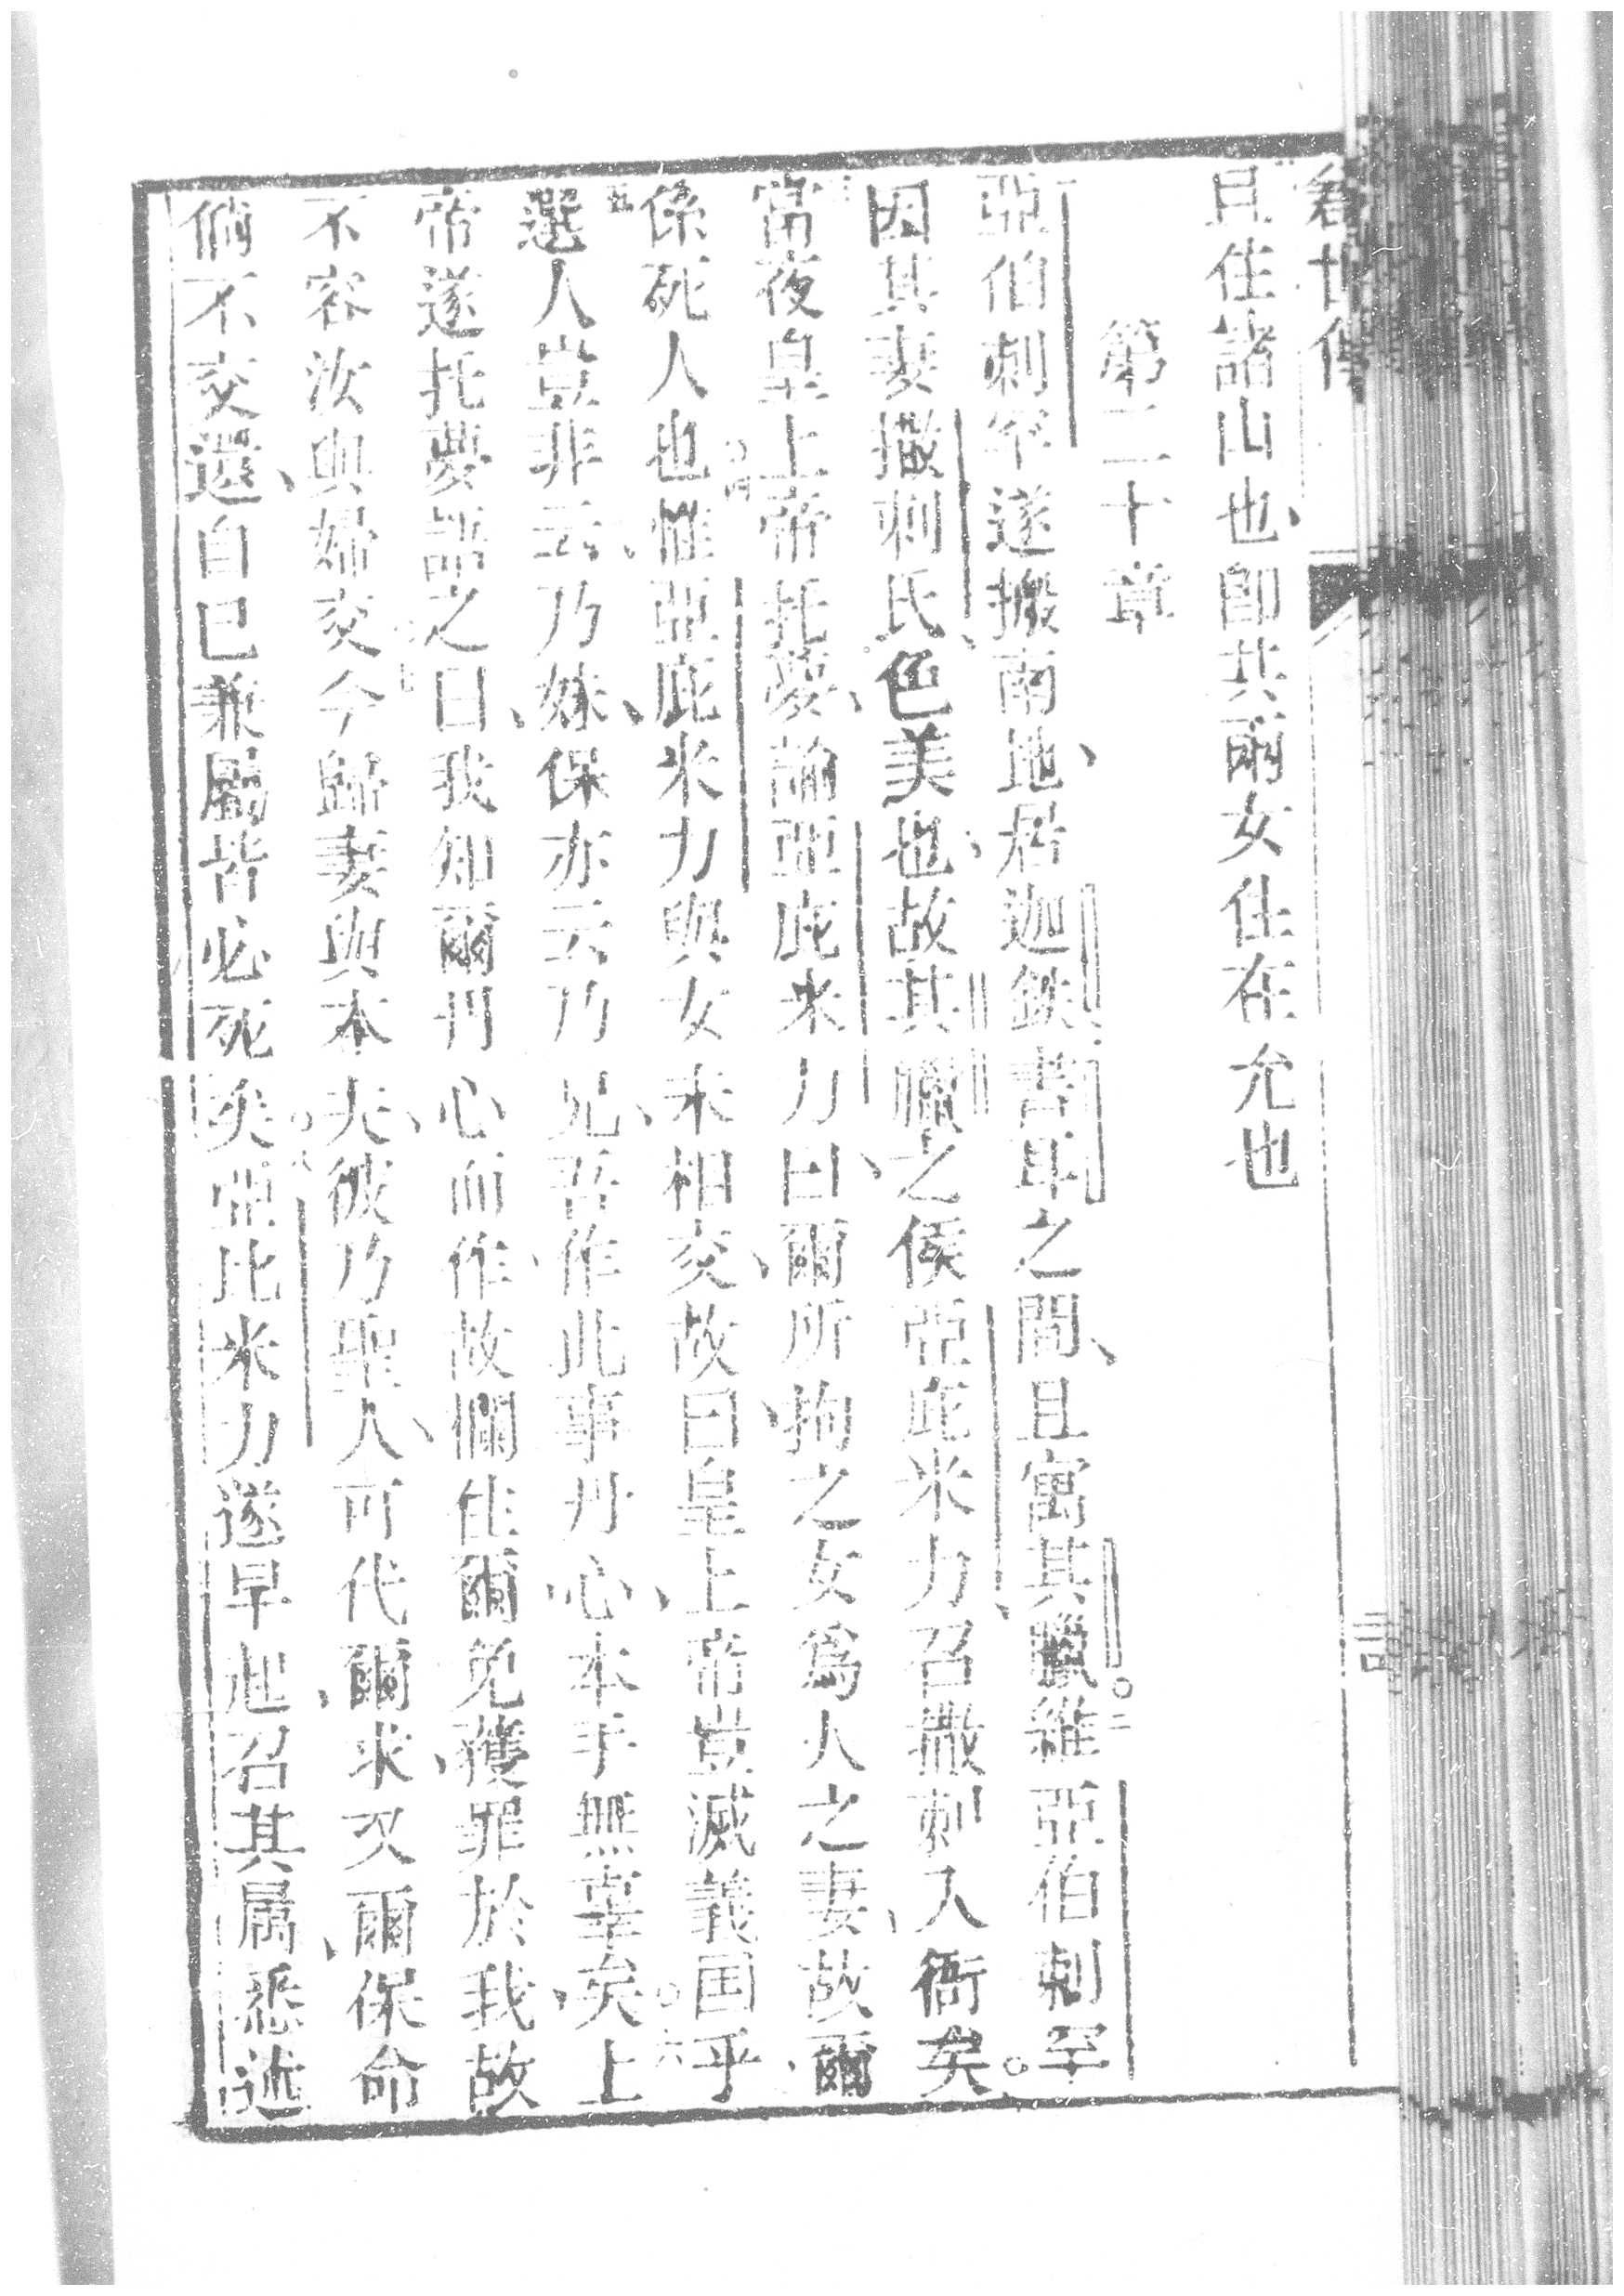 且住諸山也、即共兩女住在允也
第二十章
亞伯剌罕遂搬南地、居迦鉄、書耳之間、且寓其臘維。二亞伯剌罕
因其妻撒剌氏、色美也、故其臘之侯亞庇米力、召撒剌入衙矣。
當夜皇上帝托夢、諭亞庇米力、曰爾所拘之女、爲人之妻、故爾
係死人也惟亞庇米力與女未相交、故曰皇上帝豈滅義国乎
選人豈非云、乃妹、保亦云乃兄、吾作此事丹心、本手無辜矣。六上
帝遂托夢詔之曰、我知爾丹心而作、故攔住爾免獲罪於我、故
不容汝與婦交今歸妻與本夫、彼乃聖人、可代爾求、又爾保命
倘不交還、自己兼屬皆必死矣。八亞比米力遂早起、召其属、悉述